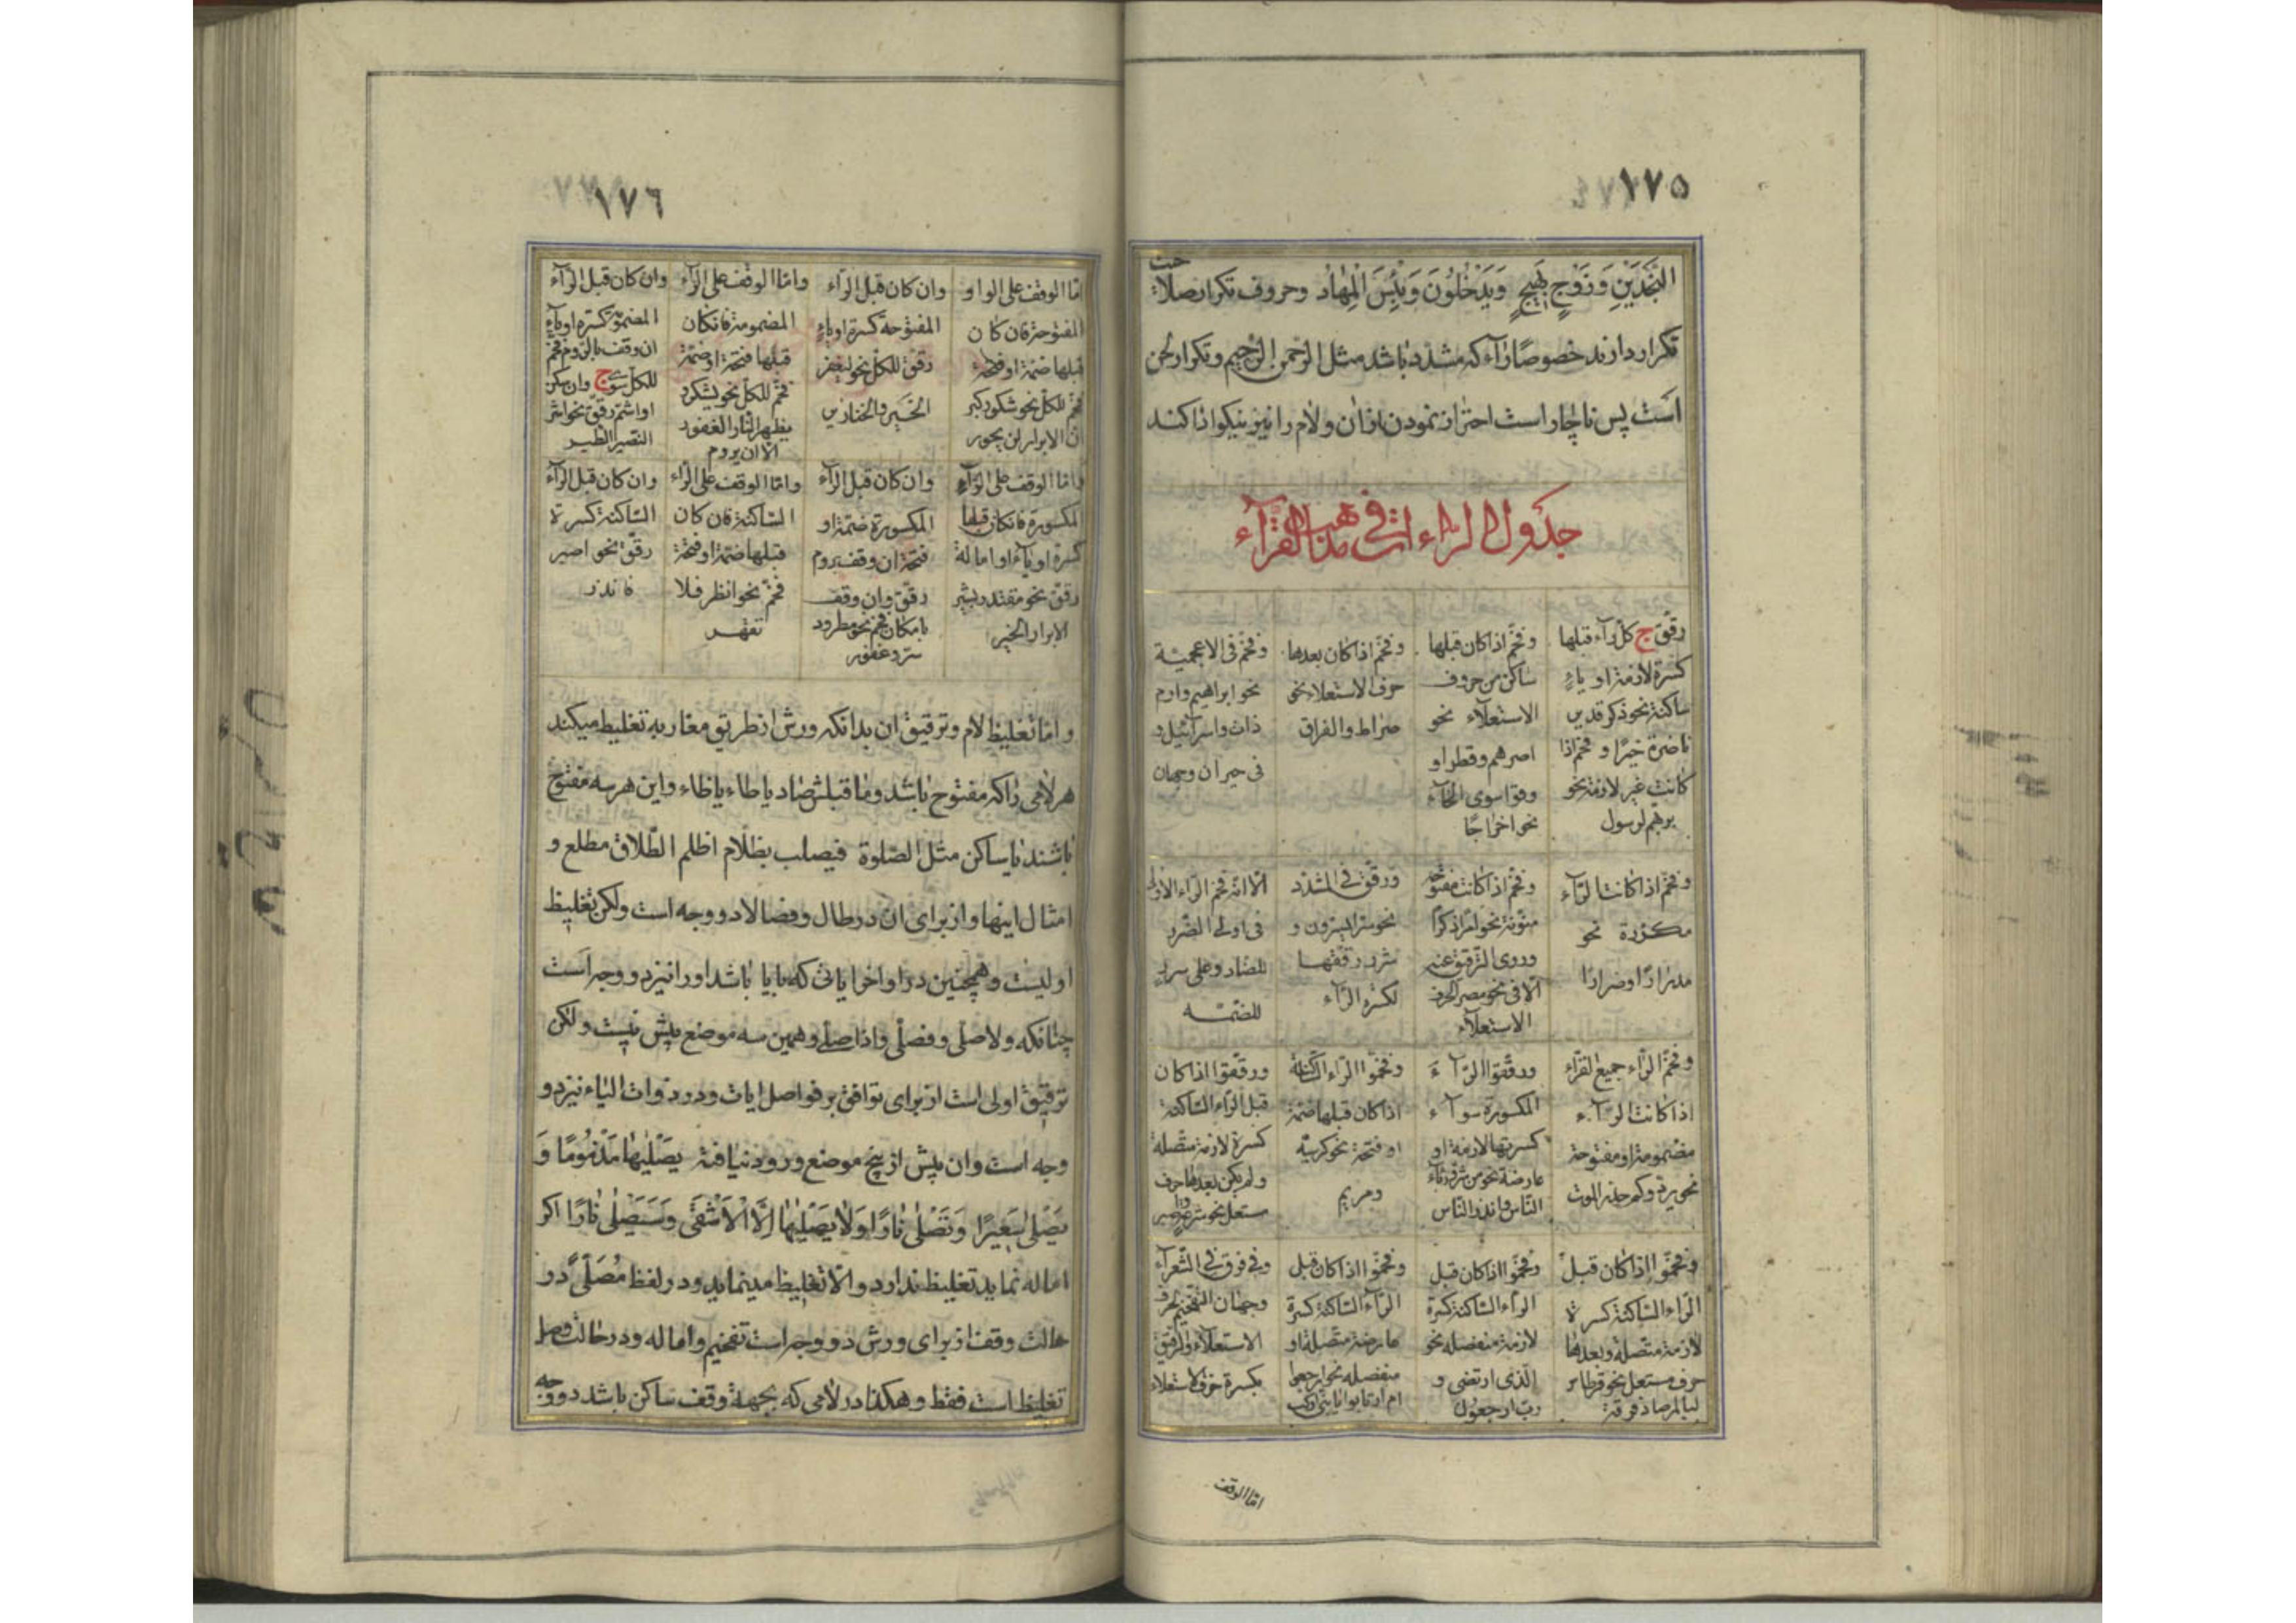 ١٧٥
النَّجْدَيْنِ وَزَوْجٍ بَهِيجٍ وَيَدْخُلُونَ وَبِئْسَ الْمِهَادُ وحروف تكرار صلاحت
تكرار دارند خصوصًا راء كه مشدّد باشد مثل الرّحمن الرّحيم وتكرار لحن
است پس ناچار است احتراز نمودن از ان ولام را نيز نيكو ادا كند
جدول الراءات في مذاهب القرّاء
رقّق ج كلّ راء قبلها
كسرة لازمة او ياء
ساكنة نحو ذكر قدير
ناضرة خيرًا وفخّم اذا
كانت غير لازمة نحو
برهم لرسول
وفخّم اذا كان قبلها
ساكن من حروف
الاستعلاء نحو
اصرهم وقطرا و
وقرا سوى الخاء
نحو اخراجًا
وفخّم اذا كان بعدها
حرف الاستعلاء نحو
صراط والفراق
وفخّم فى الاعجمية
نحو ابراهيم وارم
ذات واسرائيل و
فى حيران وجهان
وفخّم اذا كانت الرّاء
مكرّرة نحو
مدرارًا وضرارًا
وفخّم اذا كانت مفتوحة
منوّنة نحو امرًا ذكرًا
وروى الترقيق عنه
الّا فى نحو مصر الحرف
الاستعلاء
ورقّق فى المشدّد
نحو سرّ البرّون و
شرر رققها
لكسرة الرّاء
الّا انّه فخم الرّاء الاولى
فى اولى الضرر
للضاد وعلى سرر
للضمّه
وفخّم الرّاء جميع القرّاء
اذا كانت الرّاء
مضمومة او مفتوحة
نحو يرة وكم حذر الموت
ورقّقوا الرّاء
المكسورة سواء
كسرتها لازمة او
عارضة نحو من شرّ رئاء
النّاس وانذر النّاس
وفخّموا الرّاء السّاكنة
اذا كان قبلها ضمّة
او فتحة نحو كرسيّه
ومريم
ورقّقوا اذا كان
قبل الرّاء السّاكنة
كسرة لازمة متّصلة
ولم يكن بعدها حرف
مستعل نحو شرعة
وفخّموا اذا كان قبل
الرّاء السّاكنة كسرة
لازمة متّصلة وبعدها
حرف مستعل نحو قرطاس
لبالمرصاد فرقة
وفخّموا اذا كان قبل
الرّاء السّاكنة كسرة
لازمة منفصله نحو
الّذى ارتضى و
ربّ ارجعون
وفخّموا اذا كان قبل
الرّاء السّاكنة كسرة
عارضة متّصلة او
منفصله نحو ارجعوا
ام ارتابوا يا بنىّ اركب
وفى فرق فى الشّعراء
وجهان التفخيم لحرف
الاستعلاء والترقيق
بكسرة حرف الاستعلاء
امّا الوقف
١٧٦
امّا الوقف على الراو
المفتوحة فان كان
قبلها ضمّة او فتحة
فخّم للكلّ نحو شكور كبر
انّ الابرار لن يحور
وان كان قبل الرّاء
المفتوحه كسرة او ياء
رقّق للكلّ نحو ليغفر
الخير والخنازير
وامّا الوقف على الرّاء
المضمومة فان كان
قبلها فتحة او ضمّة
فخّم للكلّ نحو يشكر
يظهر النّار الغفور
الّا ان يروم
وان كان قبل الرّاء
المضمومة كسرة او ياء
ان وقف بالرّوم فخّم
للكلّ سوى ج وان سكن
او اشمّ رقّق نحو اشر
النّصير الطّير
وامّا الوقف على الرّاء
المكسورة فان كان قبلها
كسرة او ياء او امالة
رقّق نحو مقتدر بشير
الابرار الخير
وان كان قبل الرّاء
المكسورة ضمّة او
فتحة ان وقف بروم
رقّق وان وقف
باسكان فخّم نحو مطر ود
سر وغفور
وامّا الوقف على الرّاء
السّاكنة فان كان
قبلها ضمّة او فتحة
فخّم نحو انظر فلا
تقهر
وان كان قبل الرّاء
السّاكنة كسرة
رقّق نحو اصبر
فانذر
وامّا تغليظ لام وترقيق ان بدانكه ورش از طريق مغاربه تغليظ ميكند
هر لامى را كه مفتوح باشد وما قبلش صاد يا طاء يا ظاء واين هر سه مفتوح
باشند يا ساكن مثل الصّلوة فيصلب بظلّام اظلم الطّلاق مطلع و
امثال اينها واز براى ان در طال وفصالا دو وجه است ولكن تغليظ
اوليست وهمچنين در اواخر اياتى كه با يا باشد او را نيز دو وجه است
چنانكه ولا صلّى وفصلّى واذا صلّى وهمين سه موضع پيش نيست ولكن
ترقيق اولى است از براى توافق بر فواصل ايات ودر ذوات الياء نيز دو
وجه است وان پيش از پنج موضع ورود نيافته يَصْلَيْهَا مَذْمُومًا وَ
يَصْلَى سَعِيرًا وَتَصْلَى نَارًا وَلَا يَصْلَيٰهَا إِلَّا الْاَشْقَى وَسَيَصْلَى نَارًا اكر
اماله نمايد تغليظ ندارد والّا تغليظ مينمايد ودر لفظ مُصَلًّى در
حالت وقف از براى ورش دو وجه است تفخيم واماله ودر حالت وصل
تغليظ است فقط وهكذا در لامى كه بجهة وقف ساكن باشد دو وجه